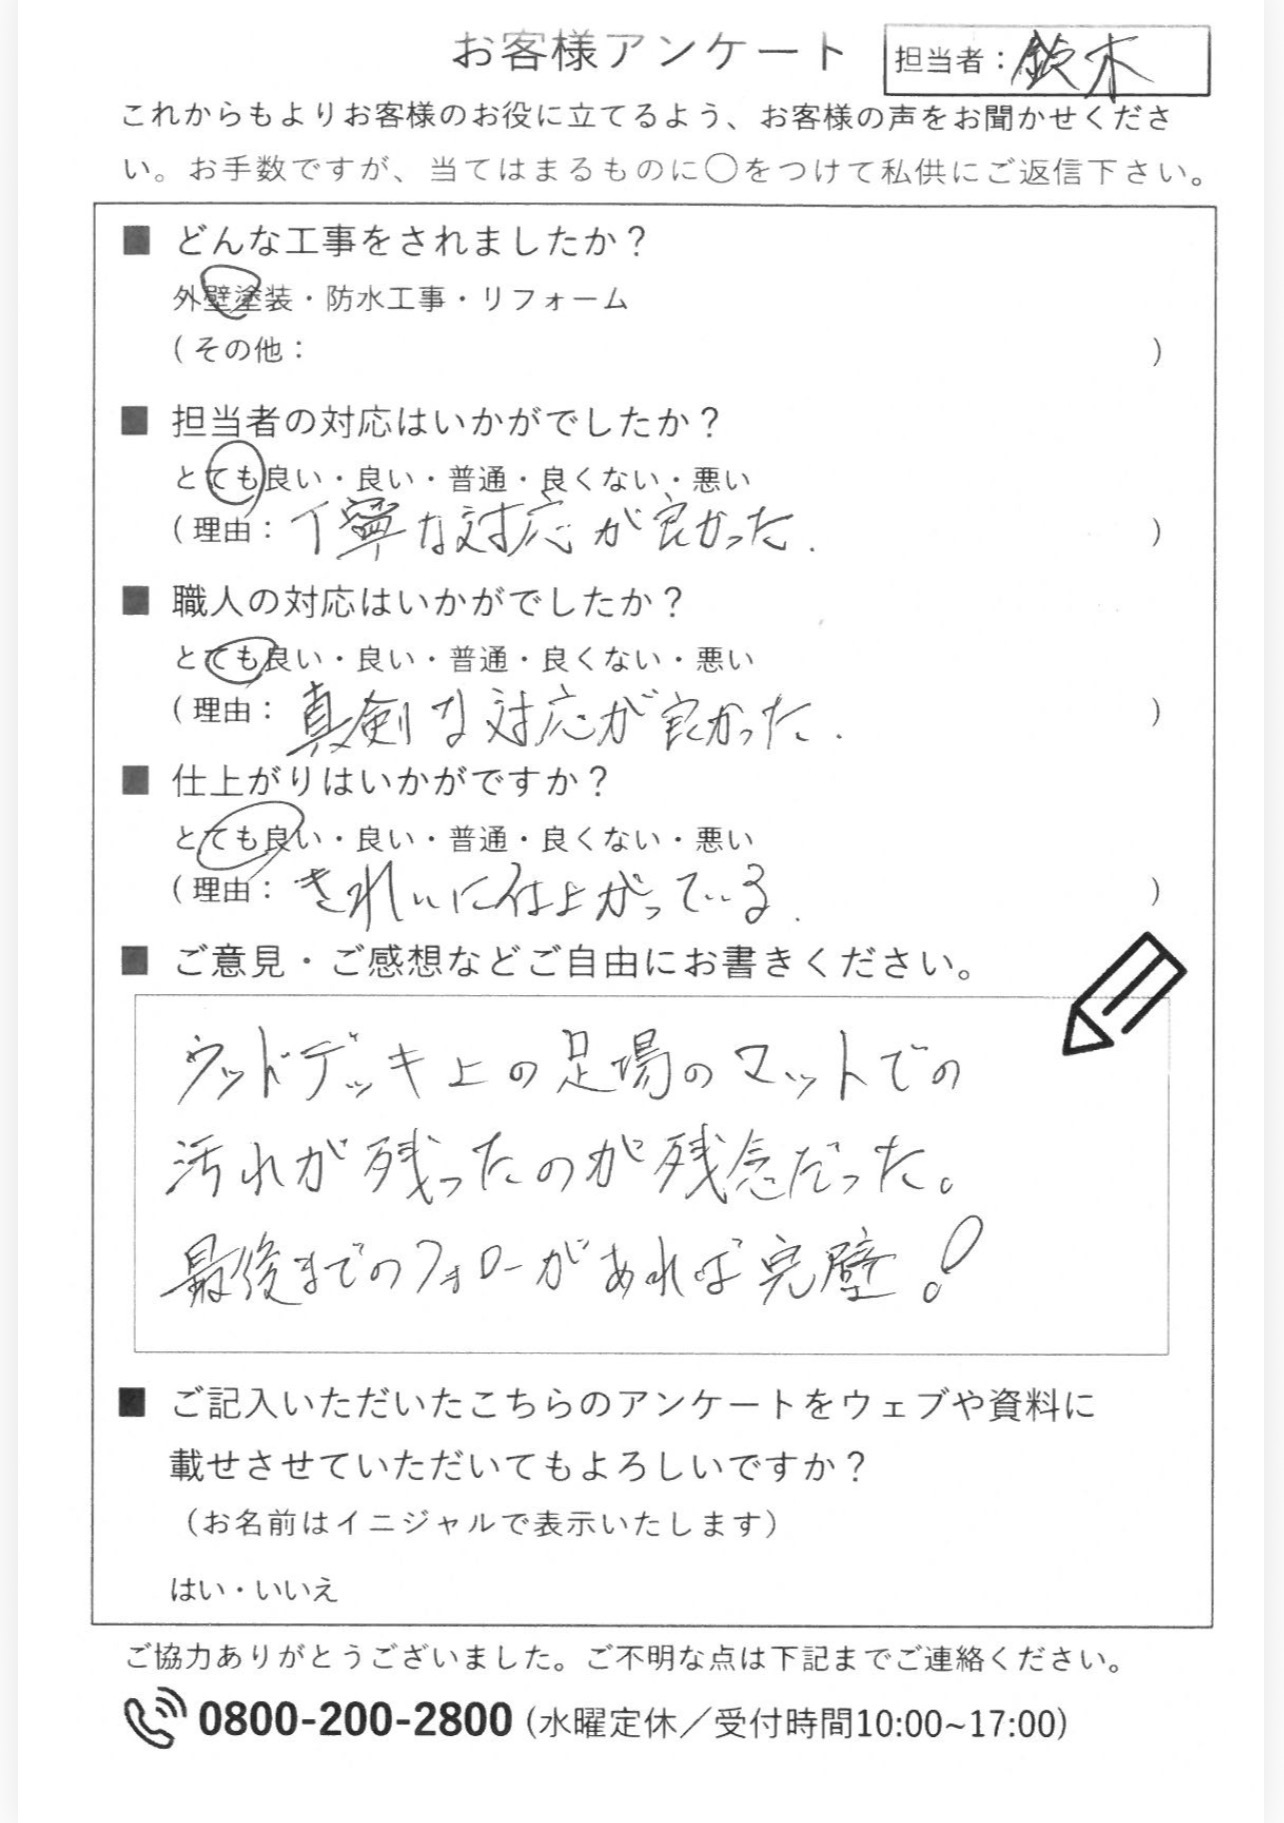 お客様アンケート
担当者：鈴木
これからもよりお客様のお役に立てるよう、お客様の声をお聞かせくださ
い。お手数ですが、当てはまるものに〇をつけて私供にご返信下さい。
■ どんな工事をされましたか？
外壁塗装・防水工事・リフォーム
（その他： ）
■ 担当者の対応はいかがでしたか？
とても良い・良い・普通・良くない・悪い
（理由：丁寧な対応が良かった. ）
■ 職人の対応はいかがでしたか？
とても良い・良い・普通・良くない・悪い
（理由：真剣な対応が良かった. ）
■ 仕上がりはいかがですか？
とても良い・良い・普通・良くない・悪い
（理由：きれいに仕上がっている. ）
■ ご意見・ご感想などご自由にお書きください。
ウッドデッキ上の足場のマットでの
汚れが残ったのが残念だった。
最後までのフォローがあれば完璧！
■ ご記入いただいたこちらのアンケートをウェブや資料に
載せさせていただいてもよろしいですか？
（お名前はイニジャルで表示いたします）
はい・いいえ
ご協力ありがとうございました。ご不明な点は下記までご連絡ください。
0800-200-2800（水曜定休／受付時間10:00~17:00）